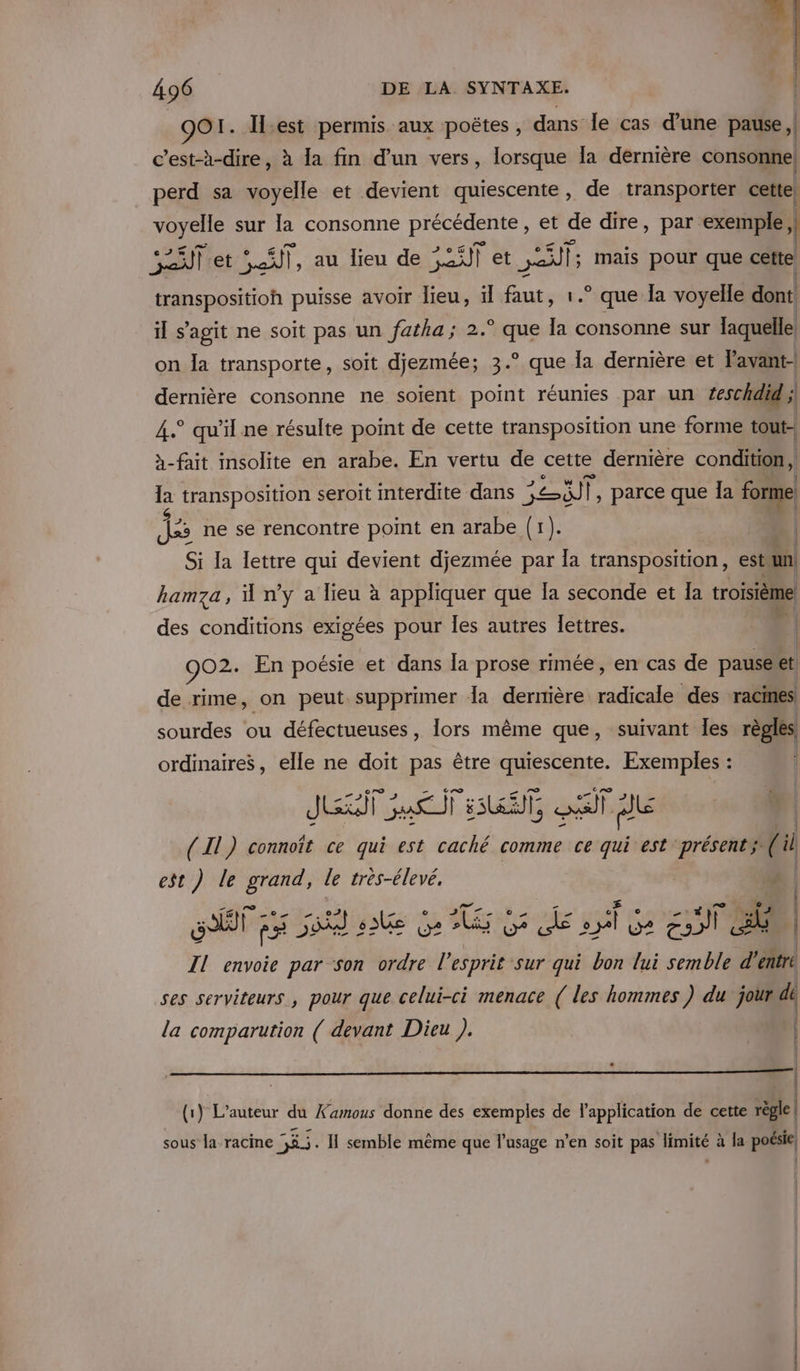 496 DE LA SYNTAXE.
901. Il est permis aux poëtes, dans le cas d'une pause,
c'est-à-dire, à la fin d'un vers, lorsque la dernière consonne
perd sa voyelle et devient quiescente, de transporter cette
voyelle sur la consonne précédente, et de dire, par exemple,
et , au lieu de et ; mais pour que cette
transposition puisse avoir lieu, il faut, 1.° que la voyelle dont
il s'agit ne soit pas un fatha; 2.° que la consonne sur laquelle
on la transporte, soit djezmée; 3.° que la dernière et l'avant-
dernière consonne ne soient point réunies par un teschdid;
4.° qu'il ne résulte point de cette transposition une forme tout-
à-fait insolite en arabe. En vertu de cette dernière condition,
la transposition seroit interdite dans , parce que la forme
فِعُلٌ ne se rencontre point en arabe (1).
Si la lettre qui devient djezmée par la transposition, est un
hamza, il n'y a lieu à appliquer que la seconde et la troisième
des conditions exigées pour les autres lettres.
902. En poésie et dans la prose rimée, en cas de pause et
de rime, on peut supprimer la dernière radicale des racines
sourdes ou défectueuses, lors même que, suivant les règles
ordinaires, elle ne doit pas être quiescente. Exemples :
عَالِمُ ٱلْغَيْبِ وَٱلشَّهَادَةِ ٱلْكَبِيرُ ٱلْمُتَعَالْ
(Il) connoît ce qui est caché comme ce qui est présent; (il
est) le grand, le très-élevé.
يُلْقِى ٱلرُّوحَ مِنْ أَمْرِهِ عَلَى مَنْ يَشَاءُ مِنْ عِبَادِهِ لِيُنْذِرَ يَوْمَ ٱلتَّلَاقْ
Il envoie par son ordre l'esprit sur qui bon lui semble d'entre
ses serviteurs, pour que celui-ci menace (les hommes) du jour de
la comparution (devant Dieu).
(1) L'auteur du Kamous donne des exemples de l'application de cette règle
sous la racine نقر. Il semble même que l'usage n'en soit pas limité à la poésie